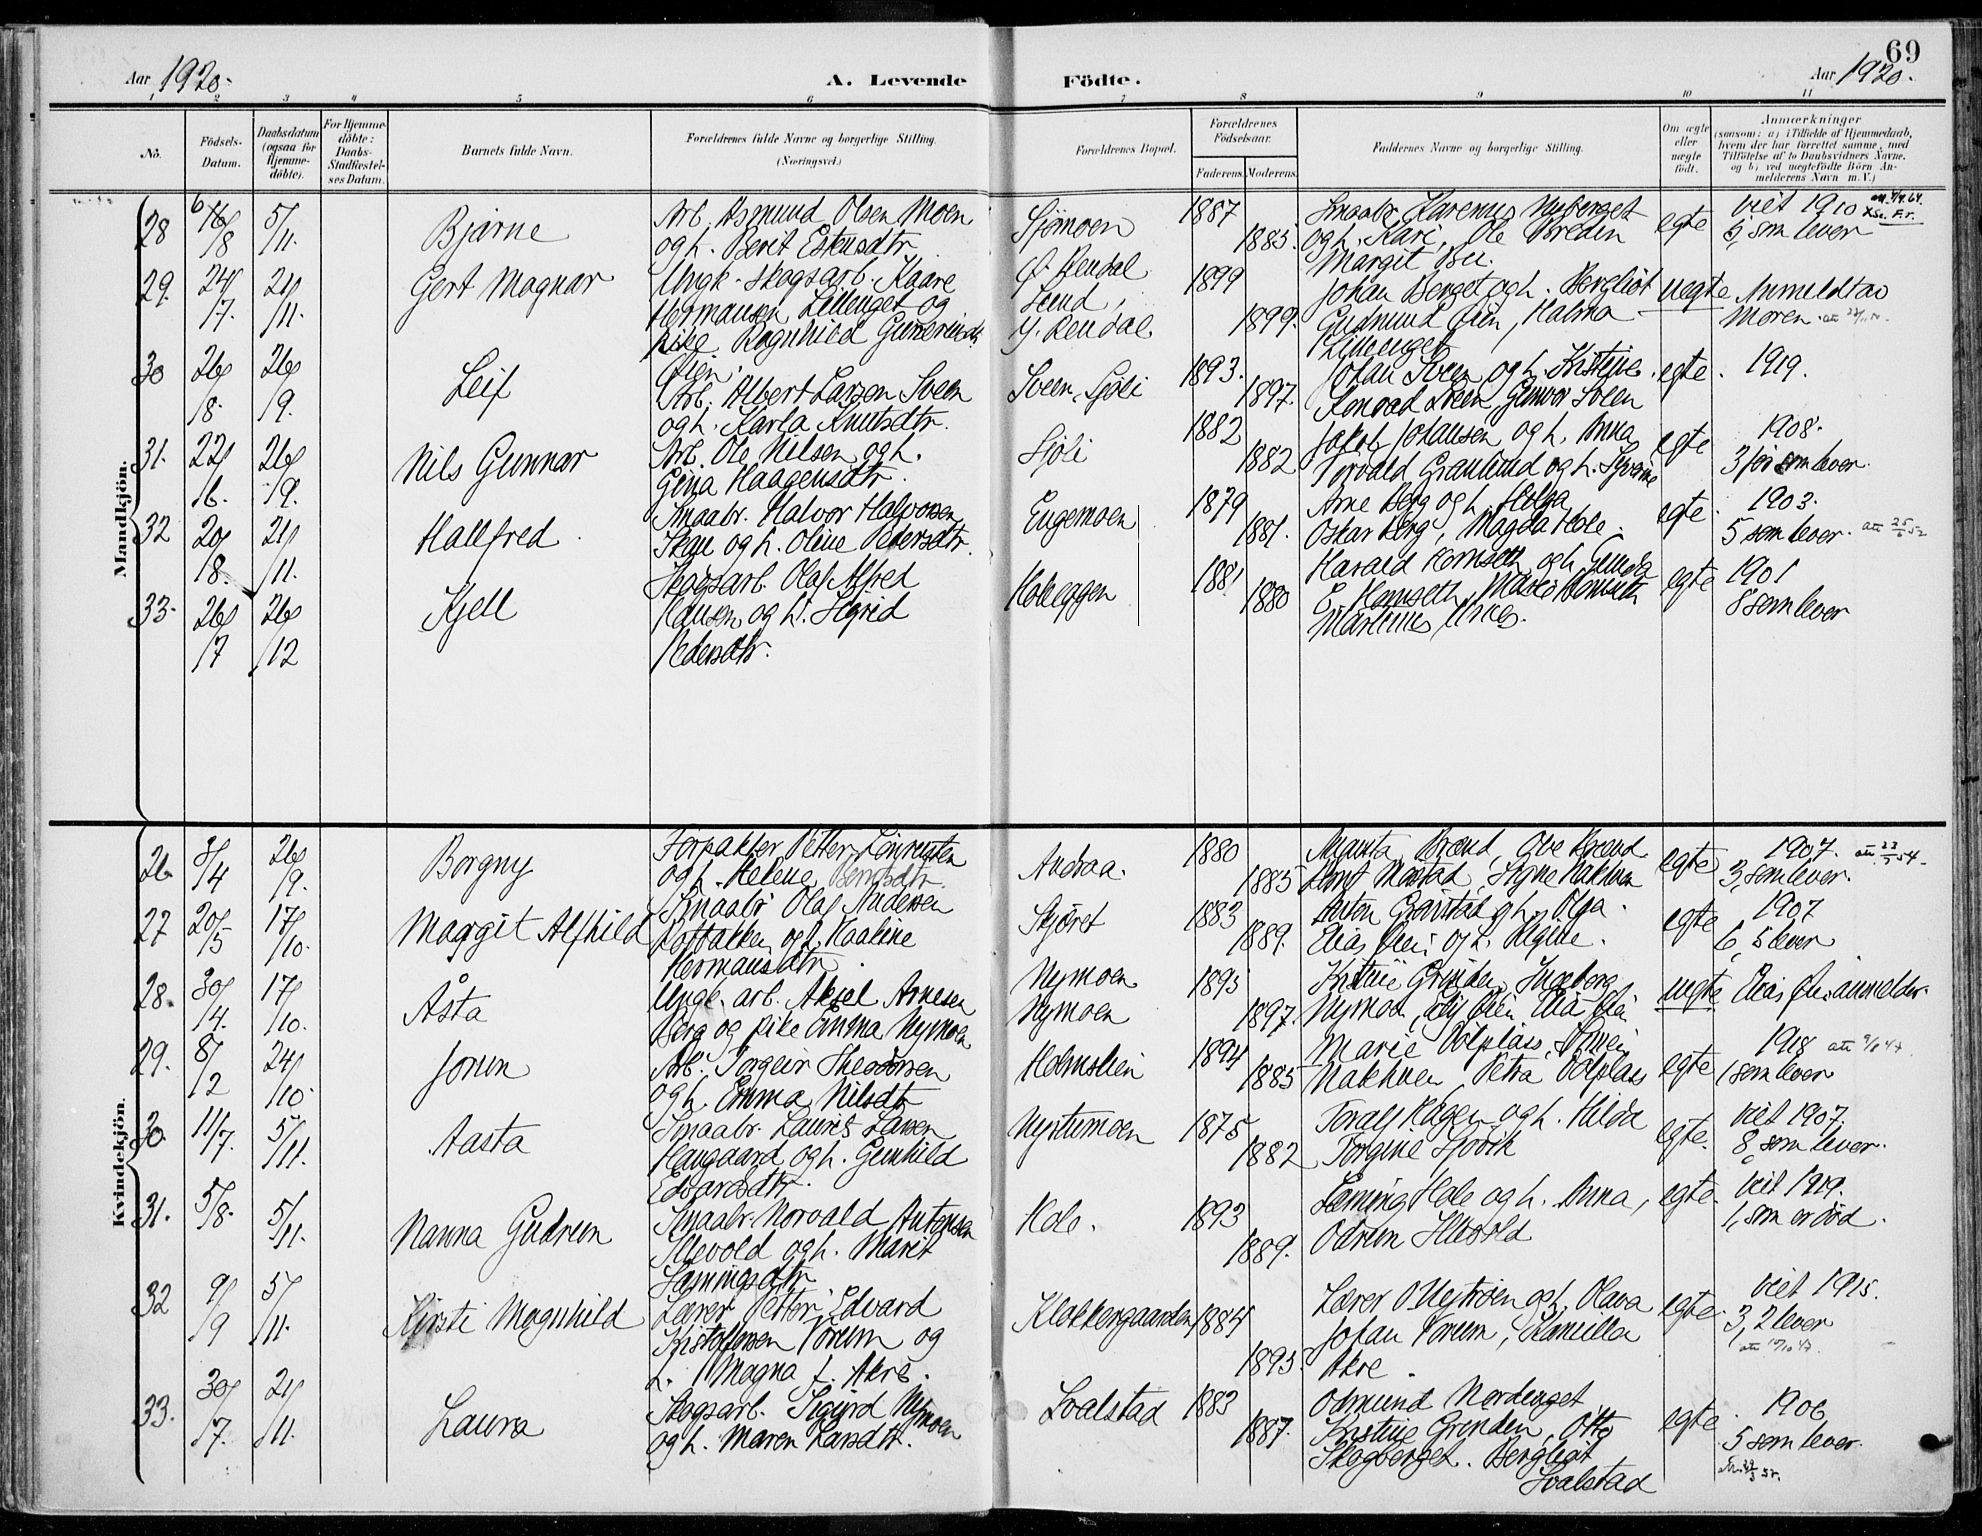 69
Aar 1920.
A. Levende Födte.
Aar 1920.
1 2 3 4 5 6 7 8 9 10 11
No.
Födsels-Datum.
Daabsdatum (ogsaa for Hjemme-döbte).
For Hjemme-döbte: Daabs-Stadfæstel-ses Datum.
Barnets fulde Navn.
Forældrenes fulde Navne og borgerlige Stilling.
(Næringsvei.)
Forældrenes Bopæl.
Forældrenes Födselsaar.
Faderens. Moderens.
Faddernes Navne og borgerlige Stilling.
Om ægte eller uægte födt.
Anmærkninger
(saasom: a) i Tilfælde af Hjemmedaab, hvem der har forrettet samme, med Tilföielse af to Daabsvidners Navne, og b) ved uægtefödte Börn An-melderens Navn m. V.)
Mandkjön.
28 16/8 5/11 Bjarne
Arb. Asmund Olsen Moen
og h. Berit Estensdtr.
Sjømoen
Ø. Rendal
1887
1885.
Smaabr. Karenus Nyberget
og h. Kari, Ole Bredin
Margit Bu.
egte
viet 1910
5, som lever
29. 24/7. 21/11. Gert Magnar
Ungk. skogsarb. Kaare
Hermansen Lillenget og
pike Ragnhild Gunerius
Øien.
Lund,
Y. Rendal
1899
1899.
Johan Berget og h. Bergliot
Gudmund Øien, Halma
Lillenget
uegte
Anmeldt av
Moren.
30 26/8. 26/9. Leif
Arb. Albert Larsen Sveen
og h. Karla Knutsdtr.
Sveen, Sjøli
1893.
1897.
Johan Sveen og h. Kristine
Konrad Sveen, Gunvor Sveen
egte.
1919.
31. 22/6. 26/9. Nils Gunnar
Arb. Ole Nilsen og h.
Gina Haagensdtr.
Sjøli
1882
1882
Jakob Johansen og h. Anna
Torvald Granlund og h. Syverine
egte
1908.
3 før som lever.
32 20/8. 21/11. Hallfred
Smaabr. Halvor Halvorsen
Skau og h. Oline Pedersdtr.
Engemoen
1879
1881.
Arne Berg og h. Helga
Oskar Berg, Magda Hole.
egte.
1903.
5 som lever.
33. 26/7 26/12 Kjell
Skogsarb. Olaf Alfred
Hansen og h. Sigrid
Pedersdtr.
Koleggen
1881
1880
Harald Hornseth og h. Gunda
E. Hornseth, Marie Hornseth
egte
1901
8 som lever
Kvindekjön.
26. 3/4 26/9. Borgny
Forpakter Petter Linrusten
og h. Helene Berntsdtr.
Andraa.
1880
1885
Brænd, Ole Brænd
Næstad, Signe Nakken
egte
1907.
3, som lever.
27 20/5 17/10. Margit Alfhild
Smaabr. Olaf Andersen
og h. Kaaline
Hermansdtr.
Skjøret
1883
1889.
Anton Granstad og h. Olga.
Elias Øien og h. Regine.
egte
1907
6, 5 lever
28. 30/4. 17/10. Åsta
Ungk. arb. Aksel Arnesen
Berg og pike Emma Nymoen
Nymoen
Nymoen
1895
1897.
Kristine Grinden, Ingeborg
Nymoen, Øien
uegte
Elias Øien anmelder.
29. 8/2 24/10. Jorun
Arb. Torgeir Theodorsen
og h. Emma Nilsdtr
Holmslien
1894
1885
Marie Volplass,
Nakken, Petra Volplass
egte
1918
1 som lever
30 11/7. 5/11. Aasta
Smaabr. Laurits Larsen
Haugaard og h. Gunhild
Edvardsdtr.
Nystumoen
1875
1882
Toralf Hagen og h. Hilda
Torgine Sjøvik
egte.
viet 1907.
8, som lever.
31. 5/8. 5/11. Nanna Gudrun
Smaabr. Norvald Antonsen
Illevold og h. Marit
Hole.
1893
1889.
Hole og h. Anna,
Odrun Illevold
egte.
viet 1919.
1, som er død.
32 9/9 5/11. Kirsti Magnhild
Lærer Petter Edvard
Kristoffersen Vorum og
h. Magna f. Akre.
Klokkergaarden
1884
1895
Lærer O. Nystrøen og h. Olava
Johan Vorum, Kamilla
Akre.
egte.
viet 1915.
3, 2 lever
33. 30/7. 21/11. Laura
Skogsarb. Sigurd Nymoen
og h. Maren Larsdtr.
Lvalstad
1883
1887.
Odmund Nordenget,
Kristine Grinden, Otto
Skogberget. Bergliot
Lvalstad
egte
1906
5 som lever.